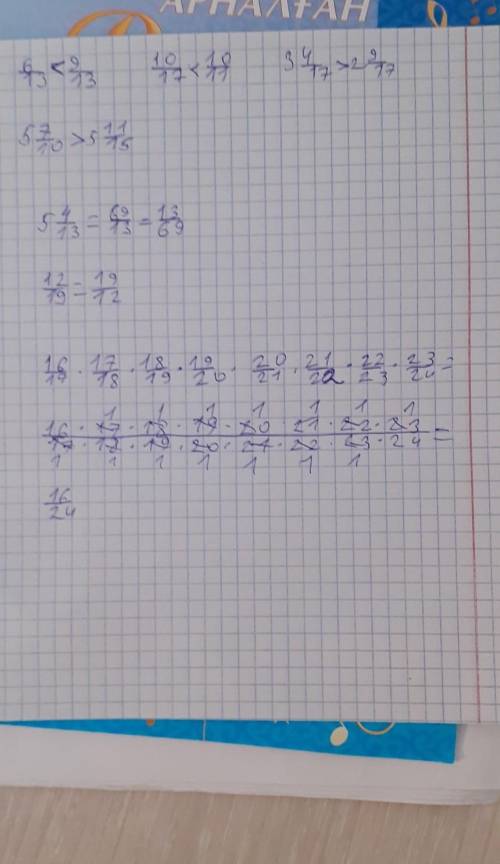 АРНАЛҒАН
6/13 < 9/13   10/17 < 10/11   3 4/17 > 2 9/17
5 7/10 > 5 11/15
5 4/13 = 69/13 = 13/69
12/19 = 19/12
16/17 · 17/18 · 18/19 · 19/20 · 20/21 · 21/22 · 22/23 · 23/24 =
16 · 17 · 18 · 19 · 20 · 21 · 22 · 23 / 17 · 18 · 19 · 20 · 21 · 22 · 23 · 24 =
16/24